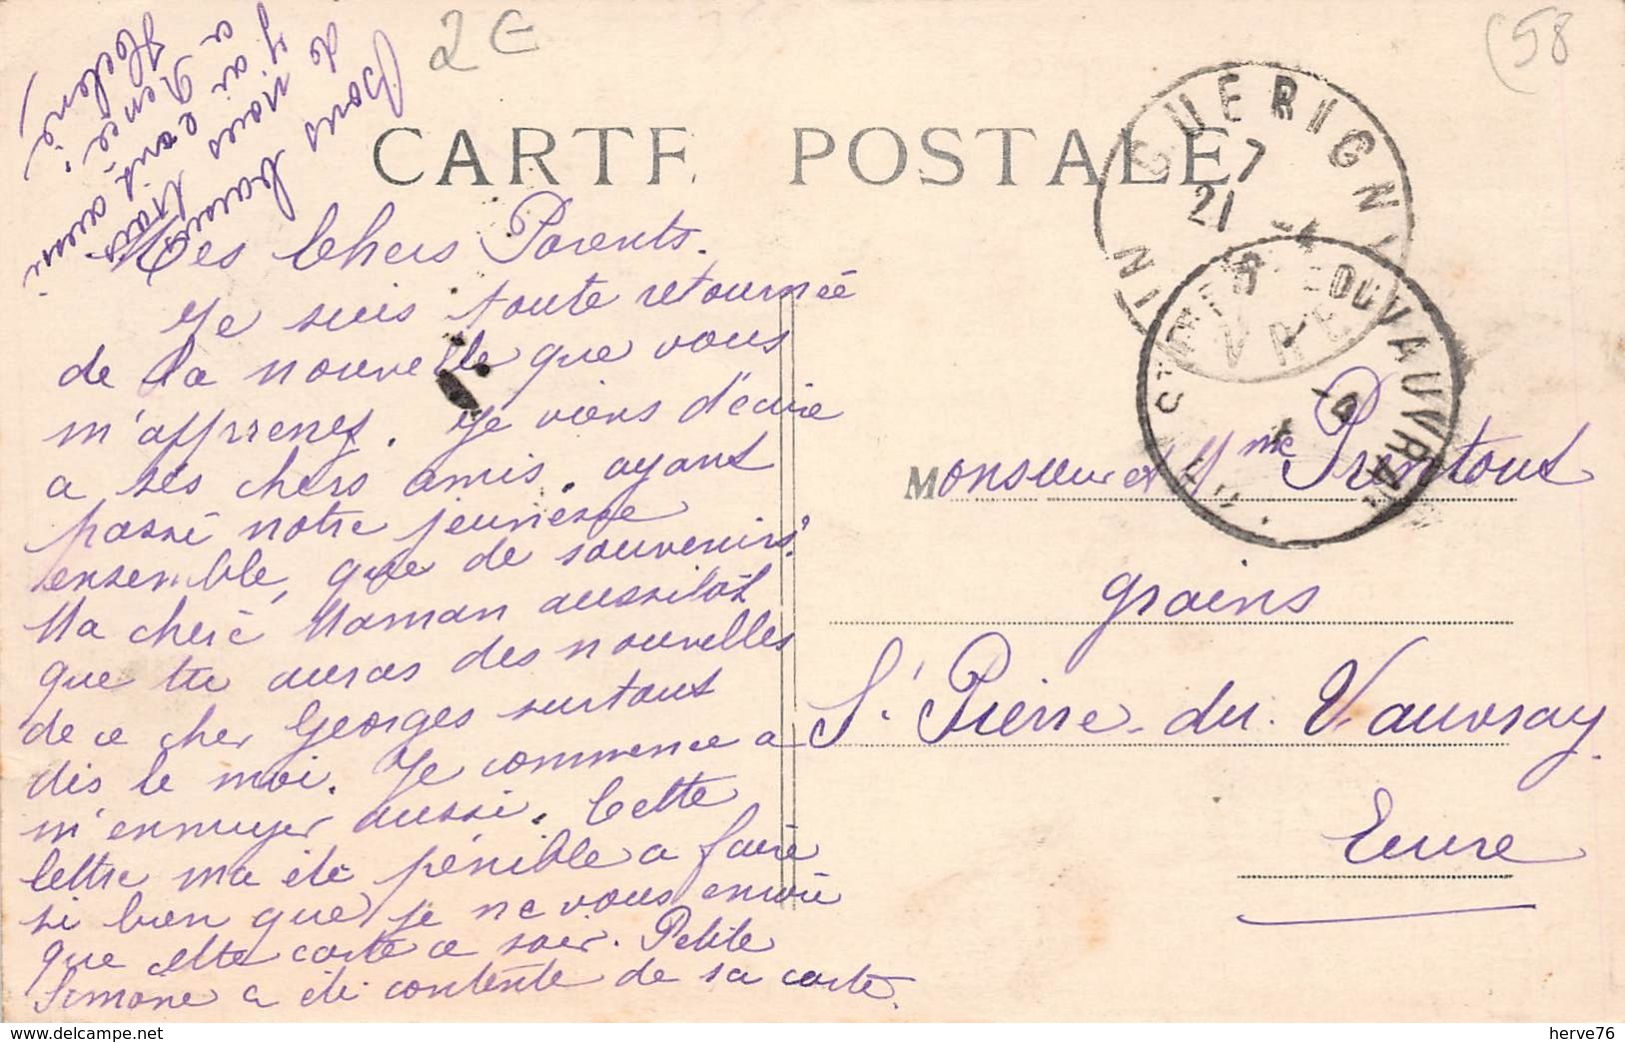 2€
(58
CARTE POSTALE
GUERIGNY
NIÈVRE
7
21 -4
ST PIERRE-DU-VAUVRAY
EURE
8
-4
Mes Chers Parents.
Je suis toute retournée
de la nouvelle que vous
m'apprenez. Je viens d'écrire
a ses chers amis. ayant
passé notre jeunesse
ensemble, que de souvenirs.
Ma cherè Maman aussitôt
que tu auras des nouvelles
de ce cher Georges surtout
dis le moi. Je commence a
m'ennuyer aussi. Cette
lettre ma été pénible a faire
si bien que je ne vous envoie
que cette carte ce soir. Petite
Simone a été contente de sa carte.
Bons baisers
de nous trois
y ai écrit aussi
a Renée
Helène
Monsieur et Mme Prentout
grains
St Pierre-du-Vauvray
Eure
www.delcampe.net
herve76